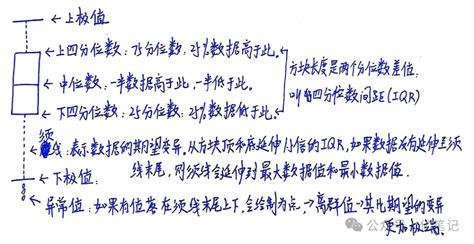 上极值
上四分位数：75分位数，25%数据高于此。
中位数：一半数据高于此，一半低于此。
下四分位数：25分位数，25%数据低于此。
方块长度是两个分位数差值，
叫做四分位数间距(IQR)
须线：表示数据的期望变异。从方块顶和底延伸1.5倍的IQR，如果数据没有延伸至须
线末尾，则须线会延伸到最大数据值和最小数据值。
下极值：
异常值：如果有值落在须线末尾上下，会绘制为点，→离群值→其比期望的变异
更加极端。
公众号
笔记